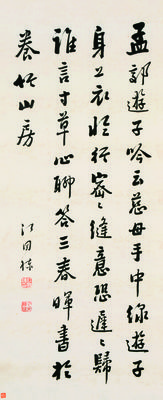 孟郊遊子吟云慈母手中線遊子
身上衣臨行密〻縫意恐遲〻歸
誰言寸草心聊答三春暉書於
養山房
江同